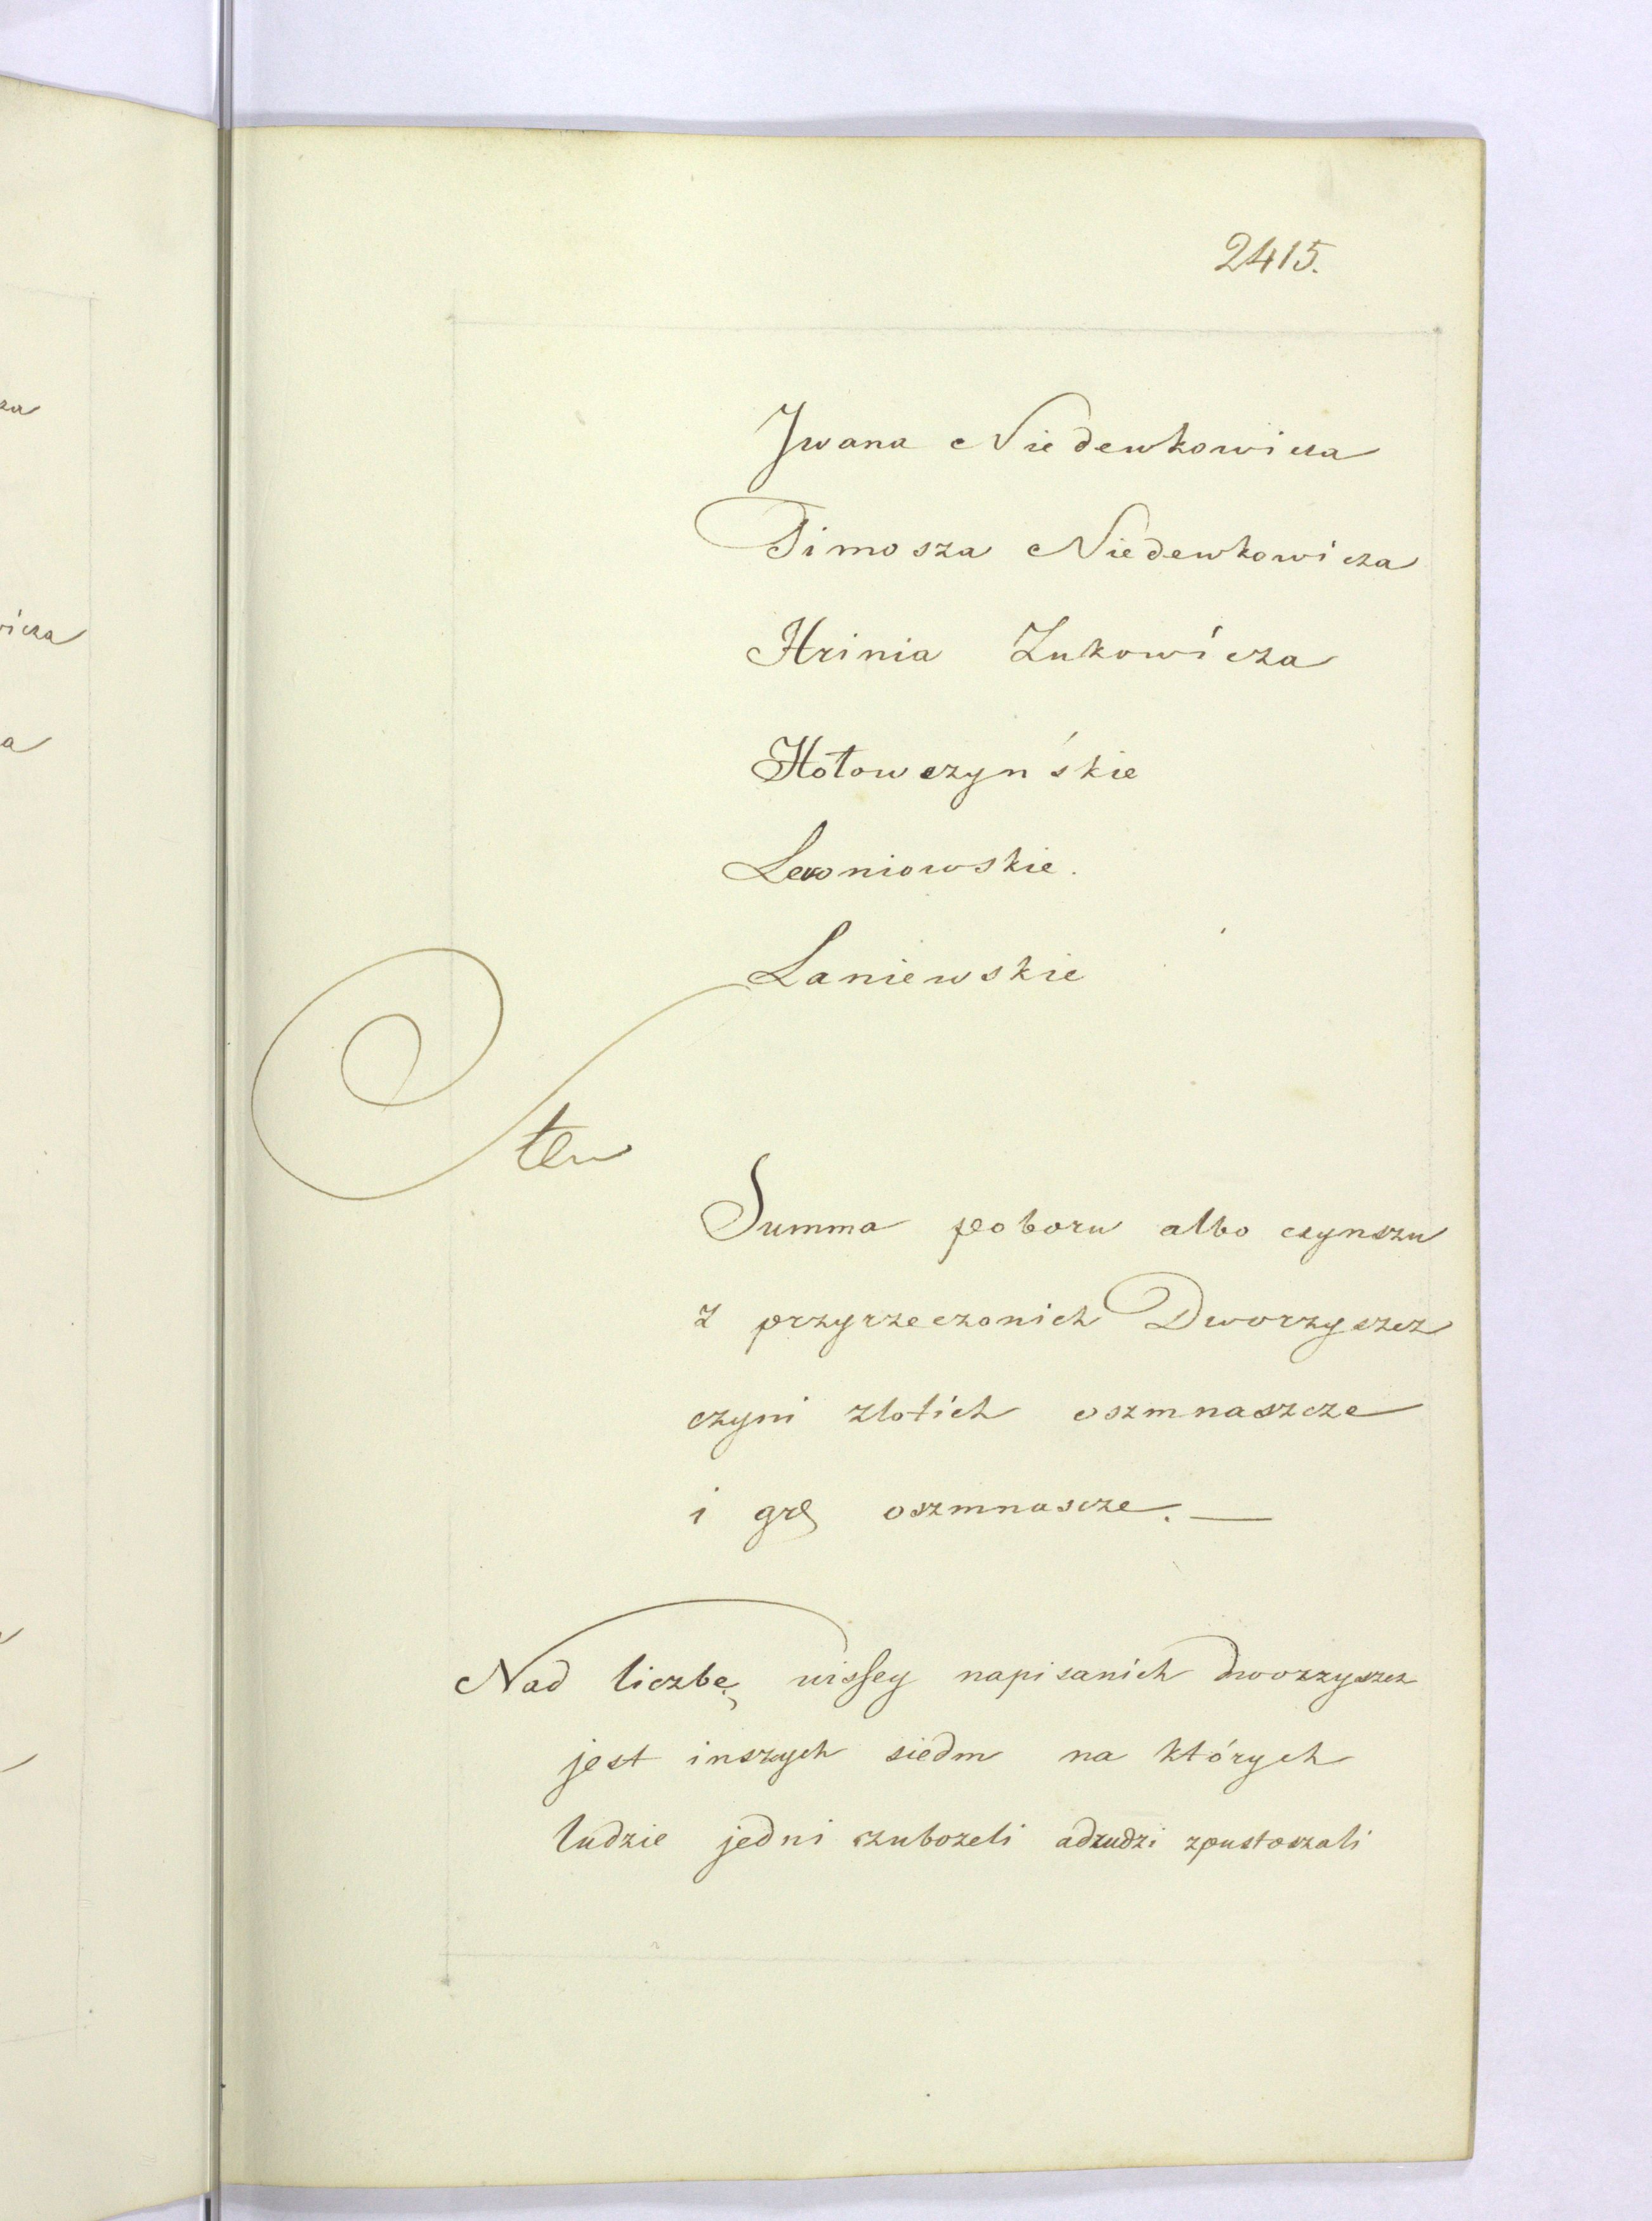 2415.
Iwana Niedewkowicza
Timosza Niedewkowicza
Hrinia Zukowicza
Hołowczyńskie
Lewoniowskie.
Laniewskie
Summa poboru albo czynszu
z przyrzeczonich Dworzyszcz
czyni zlotich oszmnaszcze
i gr oszmnascze. —
Nad liczbę wissey napisanich dworzyszcz
jest inszych siedm na których
ludzie jedni zubozeli adrudzi zpustoszali